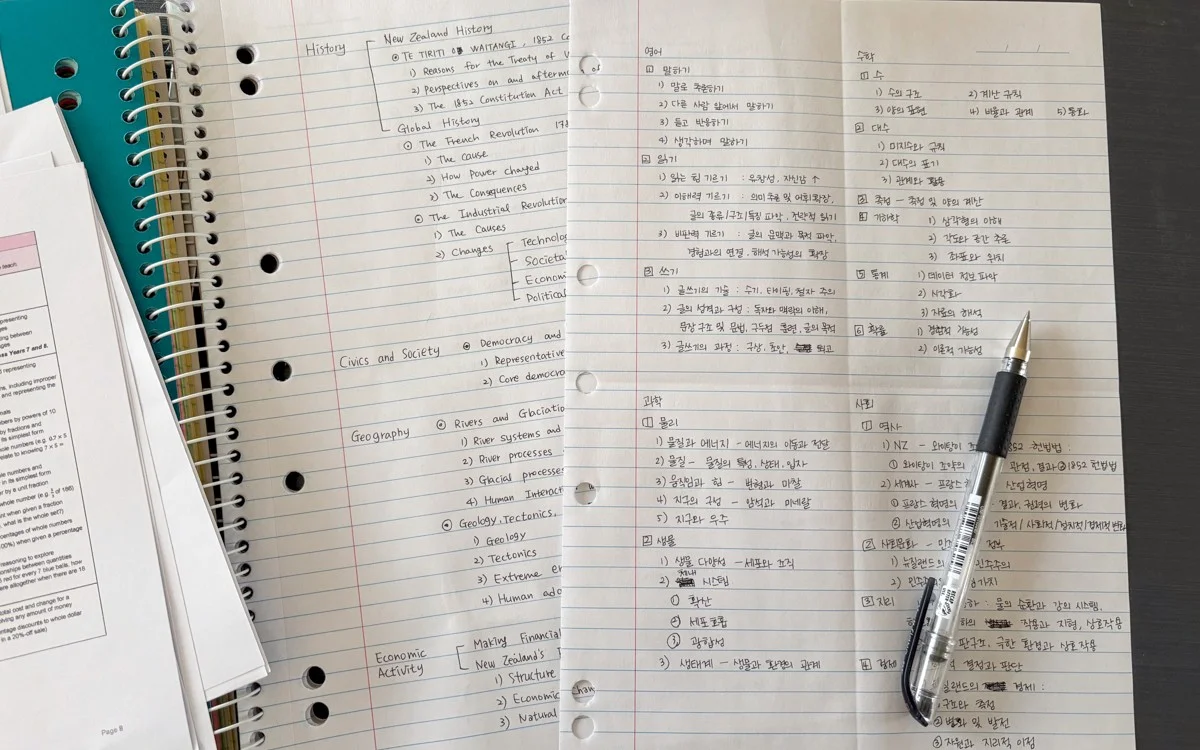 presenting
ges
ing between
ages
ss Years 7 and 8.
representing
ns, including improper
and representing the
male
mbers by powers of 10
by fractions and
its simplest form
hole numbers (e.g. 0.7 × 5
elate to knowing 7 × 5 =
le numbers and
in its simplest form
er by a unit fraction
whole number (e.g. of 186)
nt when given a fraction
, what is the whole set?)
centages of whole numbers
00%) when given a percentage
easoning to explore
onships between quantities
3 red for every 7 blue balls, how
are altogether when there are 18
total cost and change for a
olving any amount of money
entage discounts to whole dollar
in a 20%-off sale)
Page 8
History
New Zealand History
⊙ TE TIRITI OF WAITANGI, 1852 Co
1) Reasons for the Treaty of W
2) Perspectives on and afterm
3) The 1852 Constitution Act
Global History
⊙ The French Revolution 178
1) The cause
2) How Power changed
2) The Consequences
⊙ The Industrial Revolution
1) The Causes
2) Changes
Technolog
Societa
Economi
Political
Civics and Society ⊙ Democracy and
1) Representative
2) Core democra
Geography ⊙ Rivers and Glaciation
1) River systems and
2) River processes
3) Glacial processes
4) Human Interact
⊙ Geology, Tectonics,
1) Geology
2) Tectonics
3) Extreme en
4) Human ada
Economic Activity
Making Financial
New Zealand's
1) Structure
2) Economic
3) Natural
영어
1 말하기
1) 말로 추론하기
2) 다른 사람 앞에서 말하기
3) 듣고 반응하기
4) 생각하며 말하기
2 읽기
1) 읽는 힘 기르기 : 유창성, 자신감 ↑
2) 이해력 기르기 : 의미 추론 및 어휘 확장,
글의 종류/구조/특징 파악, 전략적 읽기
3) 비판력 기르기 : 글의 문맥과 목적 파악,
경험과의 연결, 해석 가능성의 확장
3 쓰기
1) 글쓰기의 기술 : 수기, 타이핑, 철자 주의
2) 글의 성격과 구성 : 독자와 맥락의 이해,
문장 구조 및 문법, 구두점 훈련, 글의 목적
3) 글쓰기의 과정 : 구상, 초안, 퇴고
수학
1 수
1) 수의 구조 2) 계산 규칙
3) 양의 표현 4) 비율과 관계 5) 통화
2 대수
1) 미지수와 규칙
2) 대수의 표기
3) 관계와 활용
3 측정 - 측정 및 양의 계산
4 기하학 1) 삼각형의 이해
2) 각도와 공간 추론
3) 좌표와 위치
5 통계 1) 데이터 정보 파악
2) 시각화
3) 자료의 해석
6 확률 1) 경험적 가능성
2) 이론적 가능성
과학
1 물리
1) 물질과 에너지 - 에너지의 이동과 전달
2) 물질 - 물질의 특성, 상태, 입자
3) 움직임과 힘 - 방향과 마찰
4) 지구의 구성 - 암석과 미네랄
5) 지구와 우주
2 생물
1) 생물 다양성 - 세포와 조직
2) 체내 시스템
① 확산
② 세포호흡
③ 광합성
3) 생태계 - 생물과 환경의 관계
사회
1 역사
1) NZ - 와이탕이 조 1852 헌법법 :
① 와이탕이 조약의 관점, 결과 ② 1852 헌법법
2) 세계사 - 프랑스 산업혁명
① 프랑스 혁명의 결과, 권력의 변화
② 산업혁명의 기술적/사회적/경제적/정치적 변화
2 사회문화 - 민주 정부
1) 뉴질랜드의 민주주의
2) 민주 가치
3 지리 하 : 물의 순환과 강의 시스템,
하의 작용과 지형, 상호작용
판구조, 극한 환경과 상호작용
4 경제 결정과 판단
질랜드의 경제 :
구조와 측정
② 변화 및 발전
③ 자원과 지리적 이점